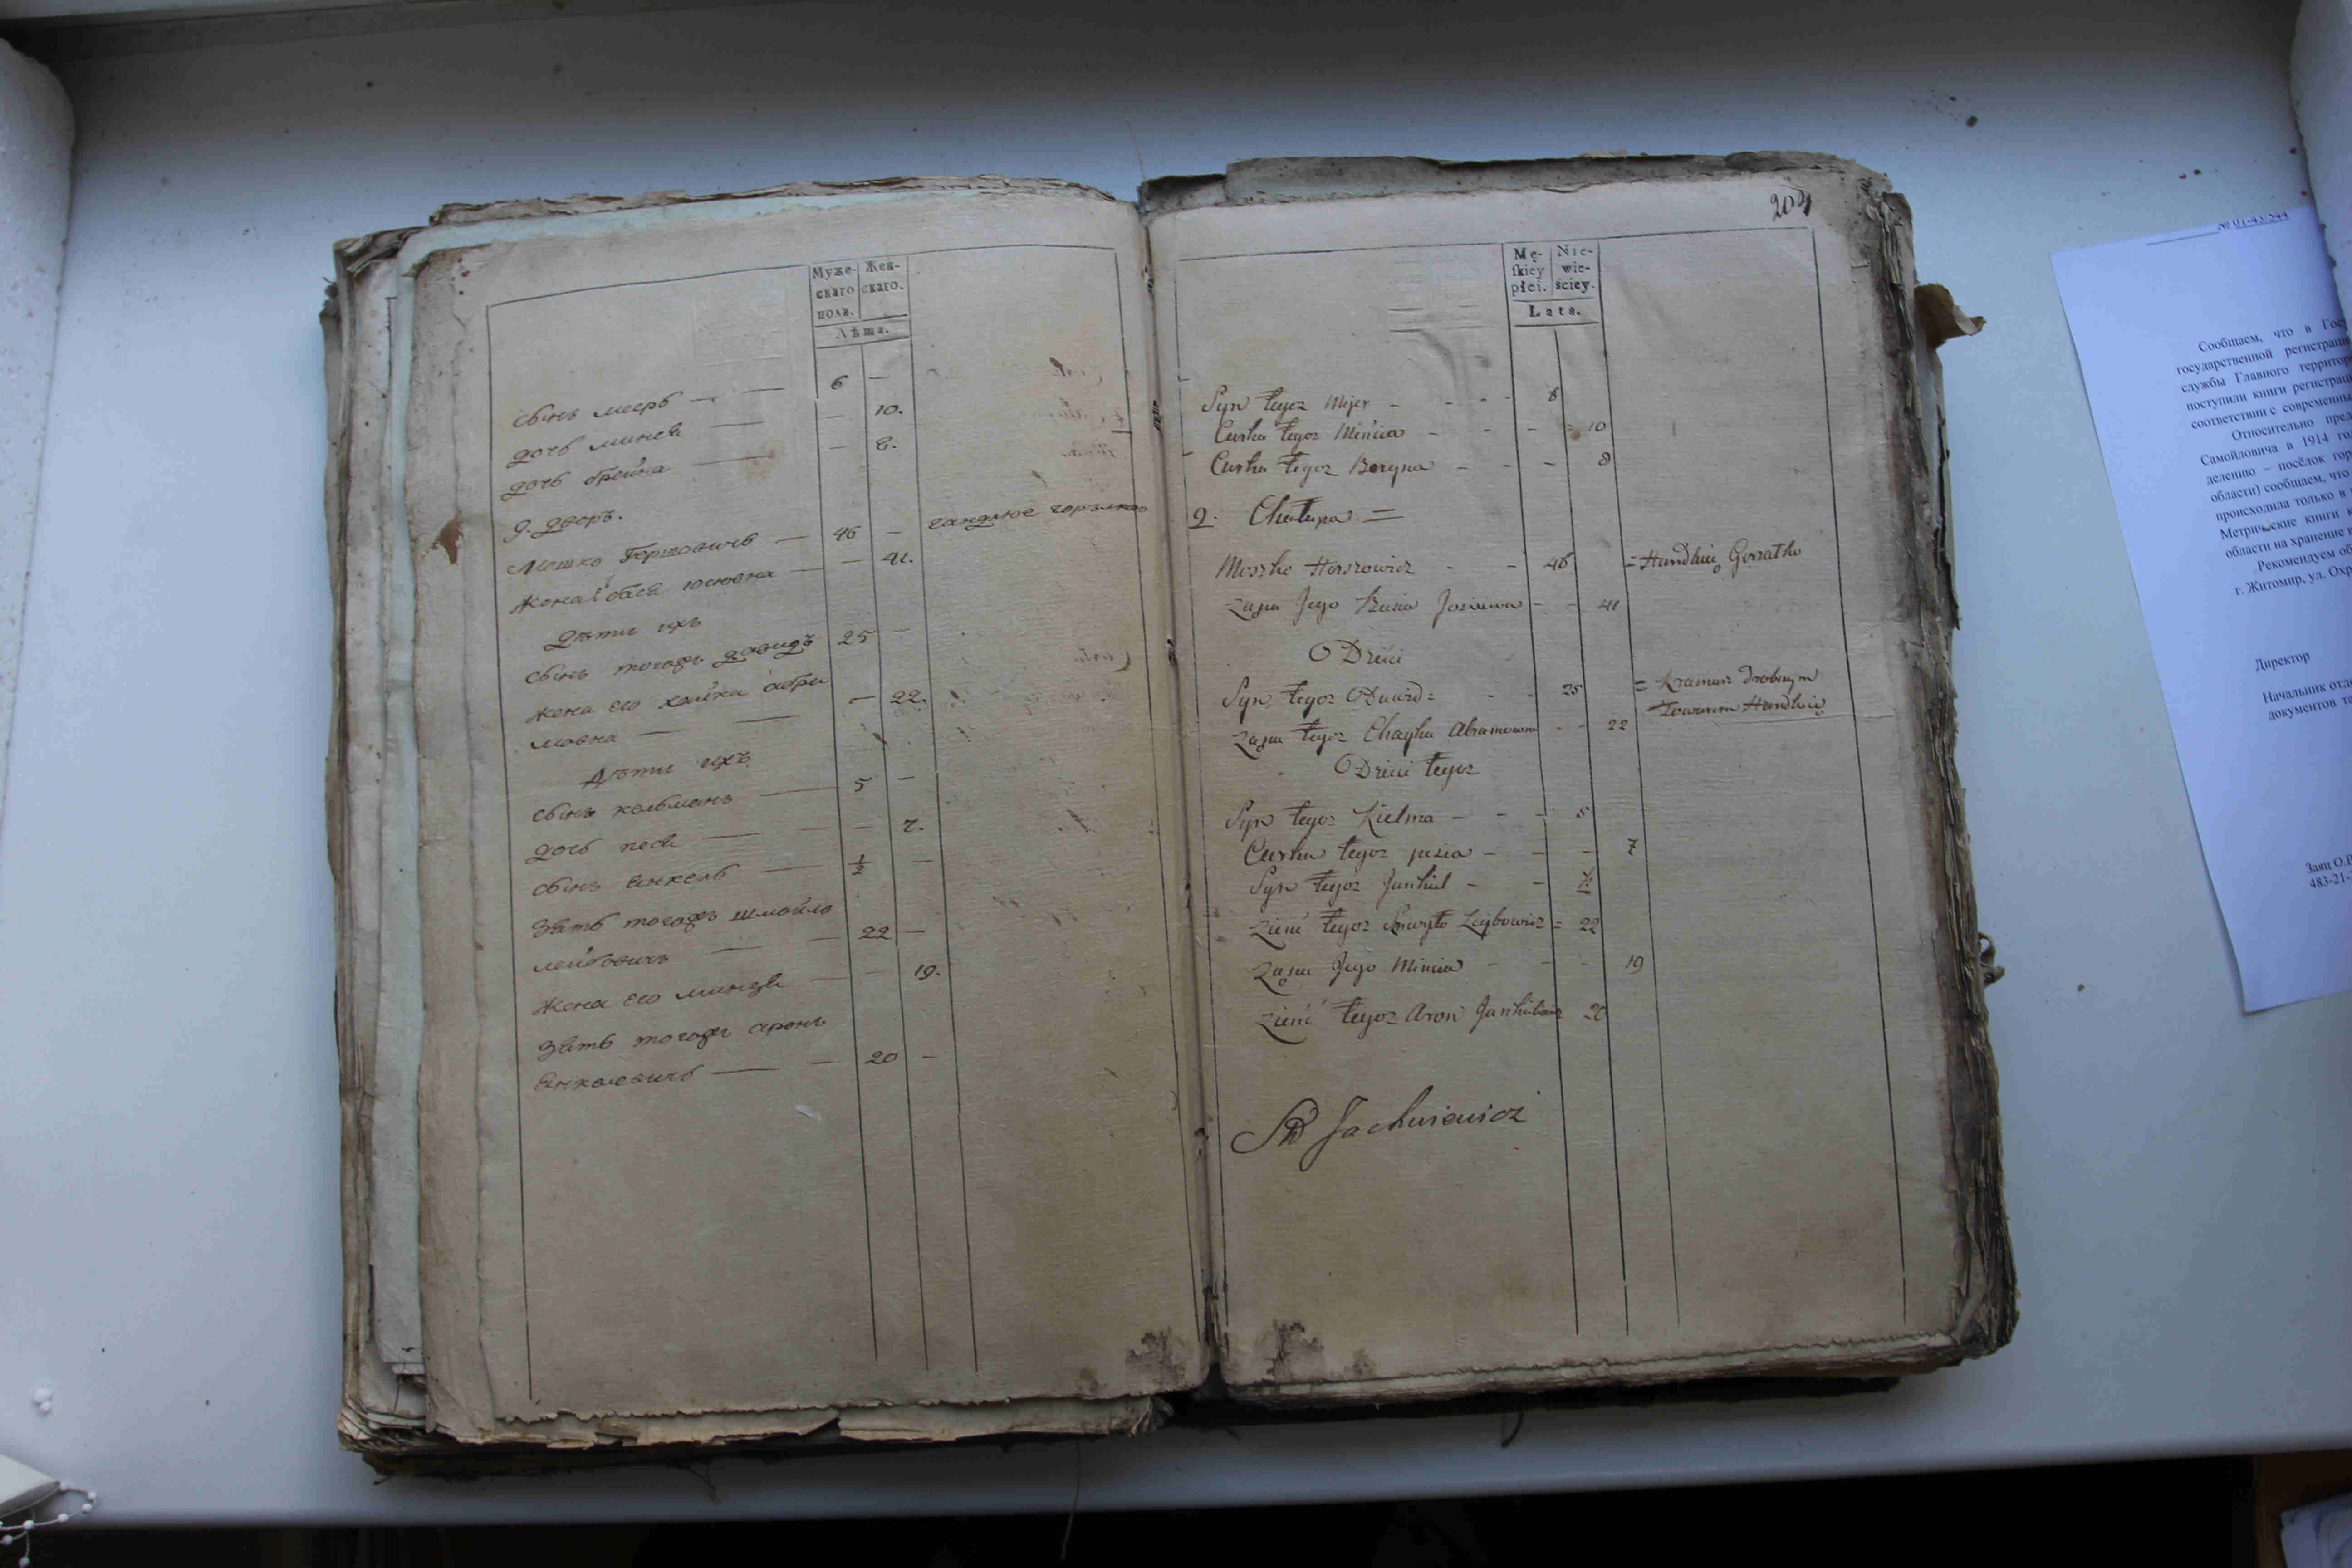 Муже-
скаго
пола.
Жен-
скаго.
Лѣта.
сынъ меерь — — 6 —
дочь минся — — 10.
дочь брейна — — 8.
9. дворъ.
Мошко Гершовичь — 46 — гандлюе горѣлкою
жена басся юсіовна — — 41.
Дѣти ихъ
сынъ тогожъ давидъ 25 —
жена его хайка абра
мовна — — — 22.
Дѣти ихъ
сынъ кельманъ — 5 —
дочь песя — — — 7.
сынъ янкель — 1/2 —
зять тогожъ шмойло
лейбовичъ — — 22 —
жена его миндзя — — 19.
зять тогожъ аронъ
янкелевичь — — 20 —
204
Mę-
ſkiey
płci.
Nie-
wie-
ściey.
Lata.
Syn tegoz Mejer - - - - 6
Curka tegoz Mincia - - - 10
Curka tegoz Bregna - - - 8
9. Chałupa =
Moszko Herszowicz - - 46 = Handluię Gorzałko
ząna Jego Basia Josiowa - - 41
Dzieci
Syn tegoz Dawid = - - 25 = kramarz Drobnym
Towarem Handluię
ząna tegoz Chayka Abramowna - - 22
Dzieci tegoz
Syn tegoz Kielma - - - 5
Curka tegoz pesia - - - 7
Syn tegoz Jankiel - - 1/2
zieńć tegoz Szmoyło Leybowicz = 22
ząna Jego Mincia - - - 19
zieńć tegoz Aron Jankielowicz 20
Jachniewicz
№ 01-43/544
Сообщаем, что в Гос
государственной регистраци
службы Главного территор
поступили книги регистрац
соответствии с современны
Относительно пред
Самойловича в 1914 го
делению – посёлок гор
области) сообщаем, что
происходила только в
Метрические книги
области на хранение
Рекомендуем об
г. Житомир, ул. Охр
Директор
Начальник отде
документов
Заяц О.В
483-21-